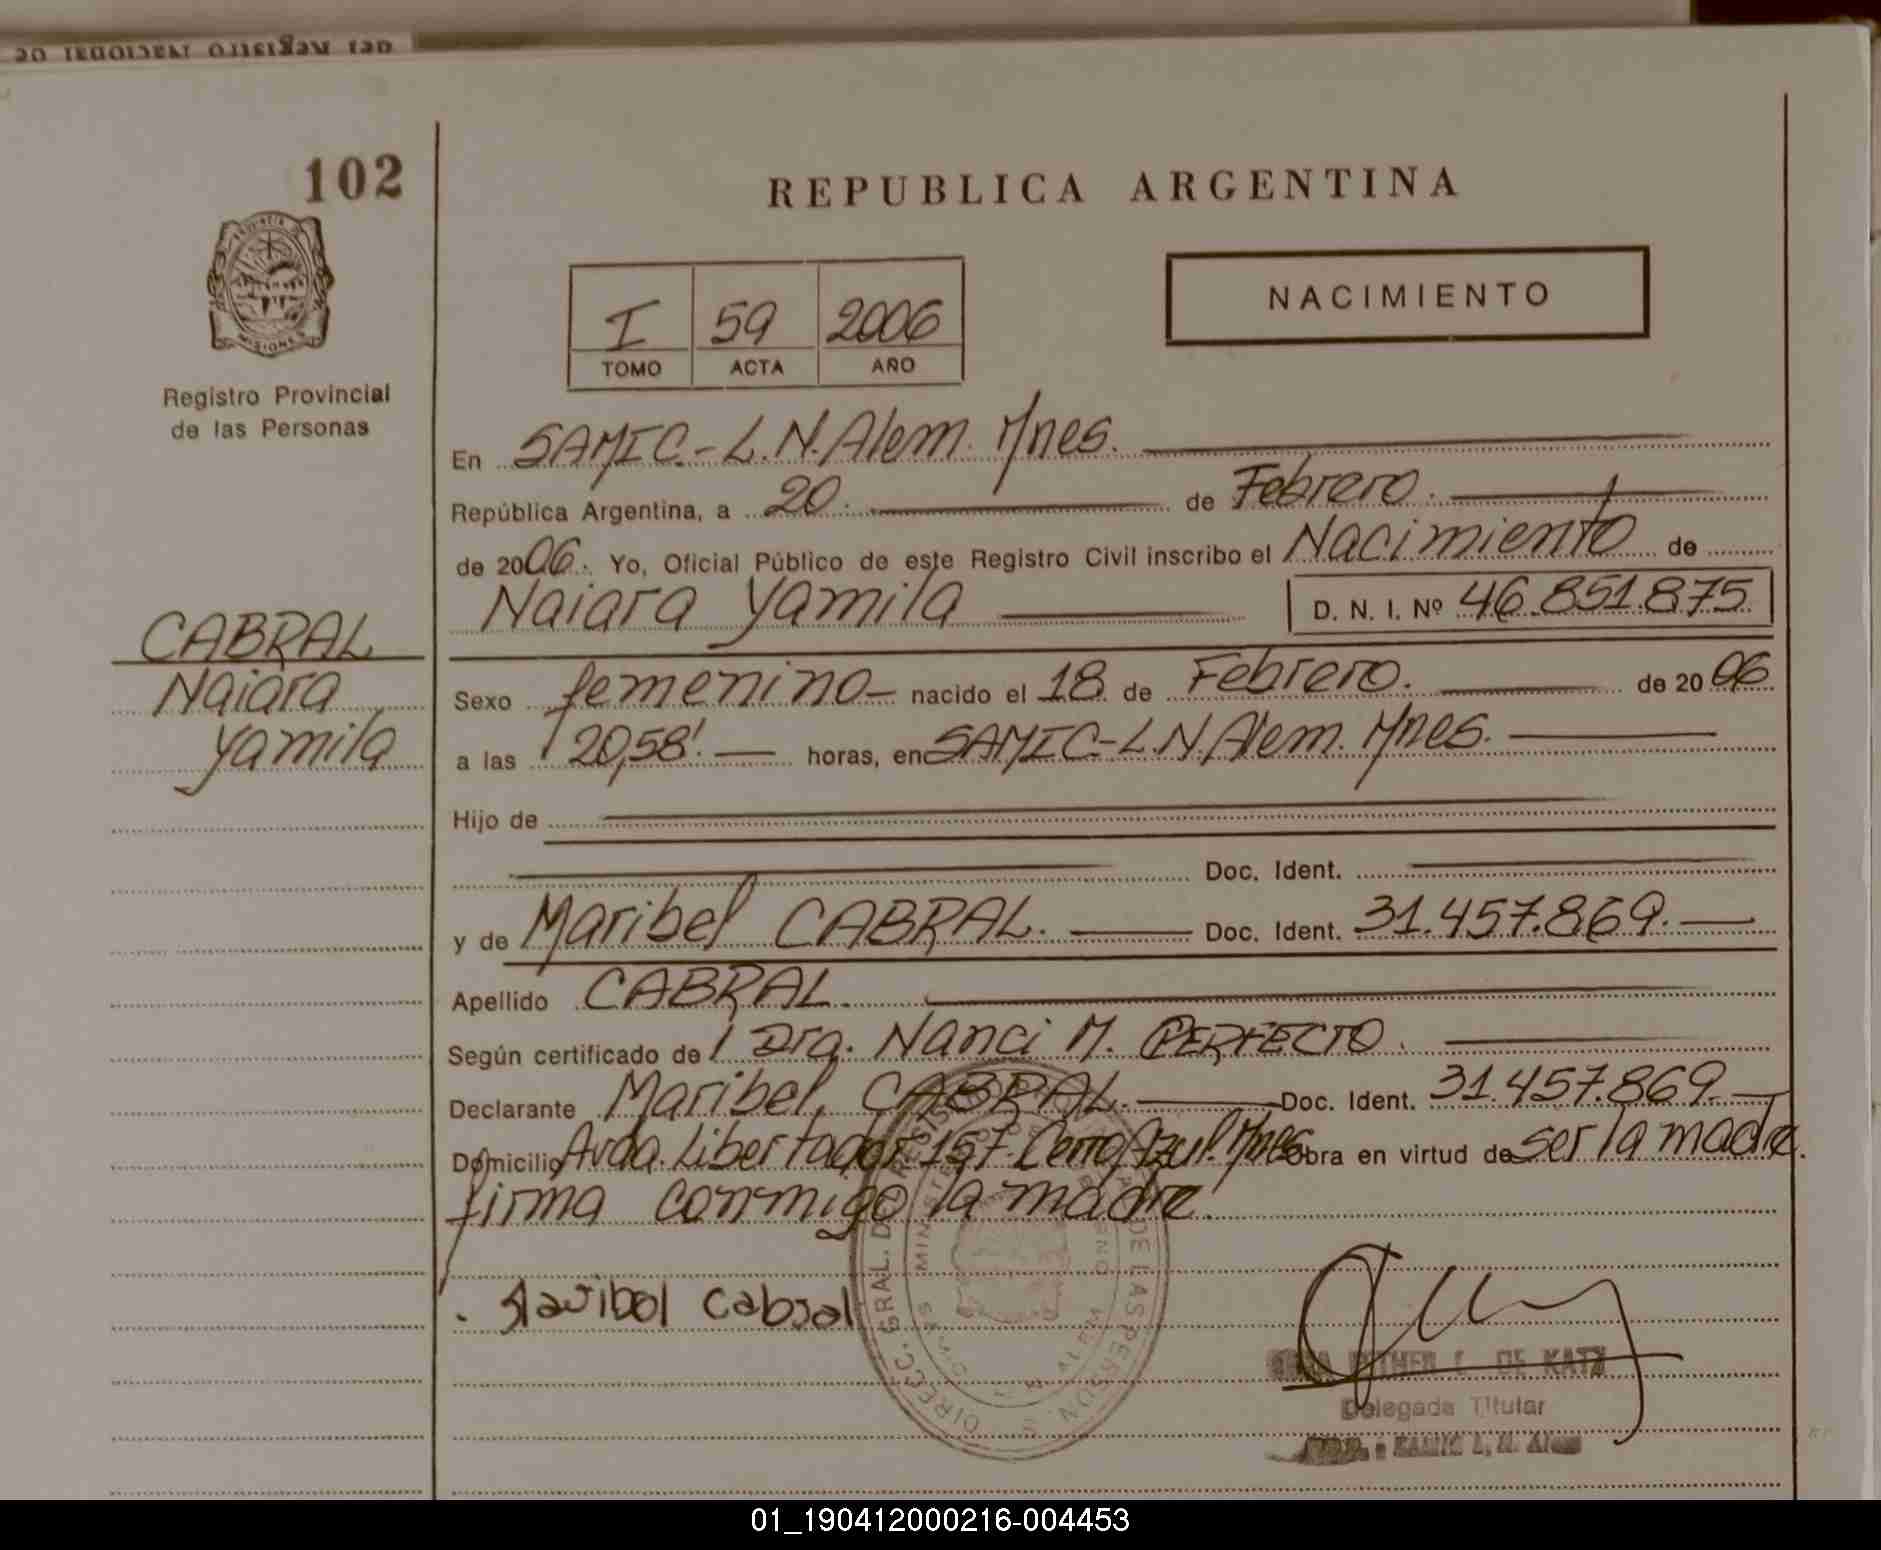 102
REPUBLICA ARGENTINA
PROVINCIA DE
MISIONES
Registro Provincial
de las Personas
I 59 2006
TOMO ACTA AÑO
NACIMIENTO
En SAMIC.-L.N.Alem. Mnes.
República Argentina, a 20. de Febrero.
de 2006. Yo, Oficial Público de este Registro Civil inscribo el Nacimiento de
Naiara Yamila D. N. I. Nº 46.851.875
CABRAL
Naiara
Yamila
Sexo femenino nacido el 18 de Febrero. de 2006
a las 20,58'. horas, en SAMIC-L.N.Alem. Mnes.
Hijo de
Doc. Ident.
y de Maribel CABRAL. Doc. Ident. 31.457.869.
Apellido CABRAL.
Según certificado de Dra. Nanci M. PERFECTO.
Declarante Maribel, CABRAL. Doc. Ident. 31.457.869.
Domicilio Avda. Libertador 157. Cerro Azul. Mnes. Obra en virtud de ser la madre.
firma conmigo la madre.
Maribel Cabral
DIRECC. GRAL. DEL REGISTRO DE LAS PERSONAS
DE KATZ
Delegada Titular
SAMIC L. N. Alem
01_190412000216-004453